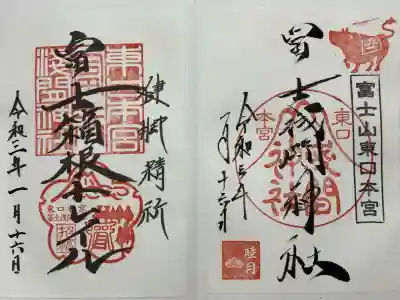 富士山東口本宮
冨士浅間神社
東口
本宮
令和三年
一月十六日
睦月
東口本宮
浅間神社
富士箱根トレイル
令和三年一月十六日